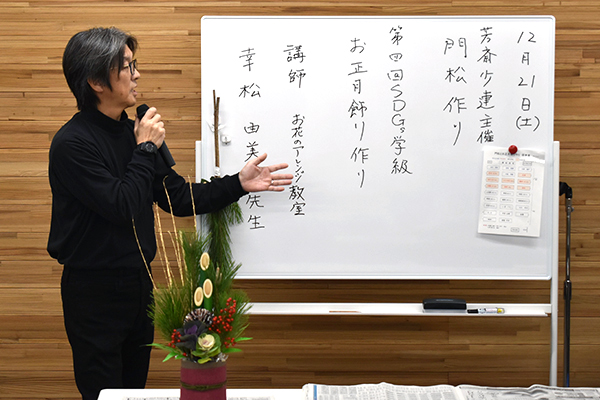 12月21日(土)
芳斎少連主催
門松作り
第四回SDGs学級
お正月飾り作り
講師 お花のアレンジ教室
幸松 由美 先生